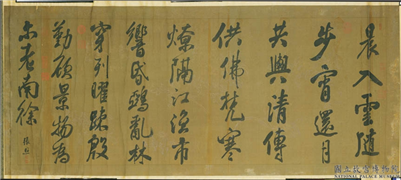 晨入雲隨
步宵還月
共輿清傳
供佛梵寒
燎隔江漁市
響鴟亂林
窮列曜疎殷
勤顧景物為
示老南徐
張照
國立故宮博物院
NATIONAL PALACE MUSEUM